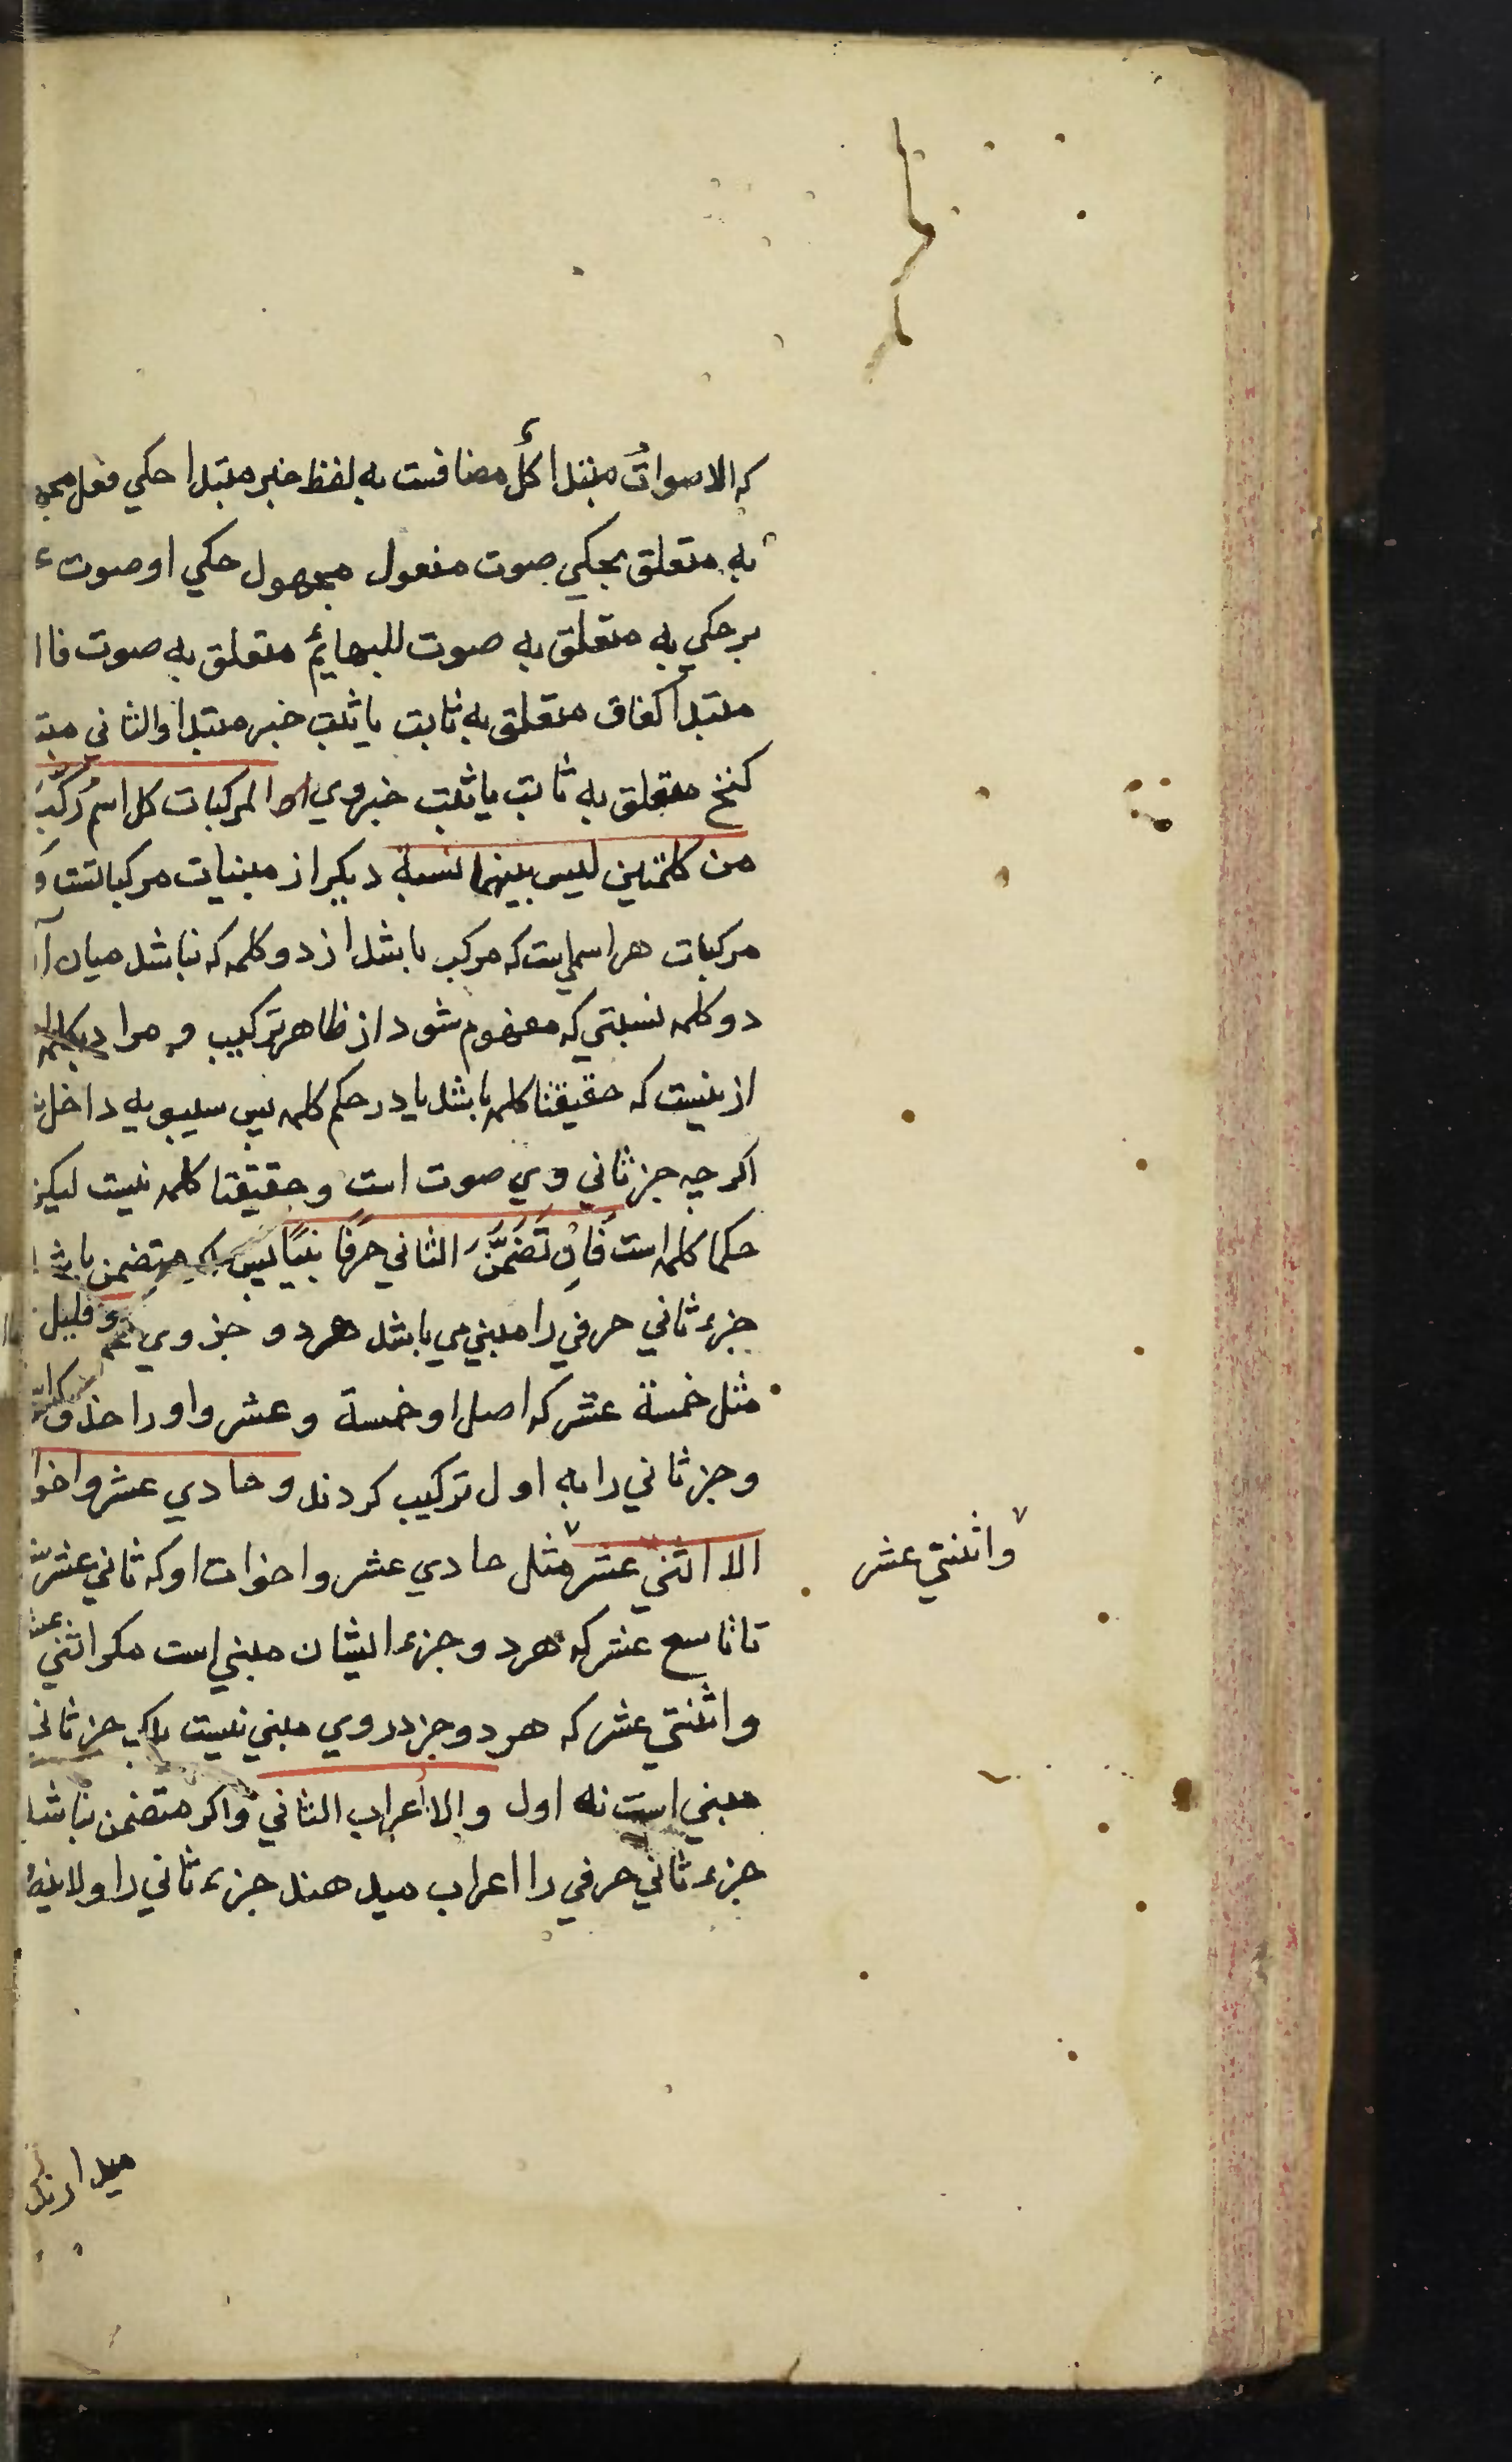 که الاصوات مبتدا کل مضافست به لفظ خبر مبتدا حکي فعل مجهو
به متعلق بحکي صوت مفعول مجهول حکي او صوت ء
بر حکي به متعلق به صوت للبهایٔم متعلق به صوت فاا
مبتدا کغاق متعلق به ثابت یا ثبت خبر مبتدا والثاني مبتد
کنخ متعلق به ثابت یا ثبت خبر وي المرکبات کل اسم رُکّبَ
من کلمتین لیس بینهما نسبة دیکر از مبنیات مرکباتست وَ
مرکبات هر اسمي است که مرکب باشد از دو کلمه که نباشد میان آ
دو کلمه نسبتي که مفهوم شود از ظاهر ترکیب و مراد بکلمه
ازینست که حقیقتا کلمه باشد یا در حکم کلمه پس سیبویه داخل
اکر چه جز ثاني وي صوت است و حقیقتا کلمه نیست لیکن
حکما کلمه است فَاِنْ تَضَمَّنَ الثاني حَرفًا بنیا پس اکر متضمن باشد
جزء ثاني حرفي را مبني مي باشد هر دو جز وي
مثل خمسة عشر که اصل او خمسة و عشر واو را حذف
و جز ثاني را به اول ترکیب کردند و حادي عشر واخوا
الا اثني عشر مثل حادي عشر واخوات او که ثاني عشر
واثنتي عشر
تا تاسع عشر که هر دو جزء ایشان مبني است مکر اثني عشر
واثنتي عشر که هر دو جز در وي مبني نیست بلکه جز ثاني
مبني است نه اول والا اُعراب الثاني واکر متضمن نباشد
جزء ثاني حرفي را اعراب میدهند جزء ثاني را ولاینه
میدارند